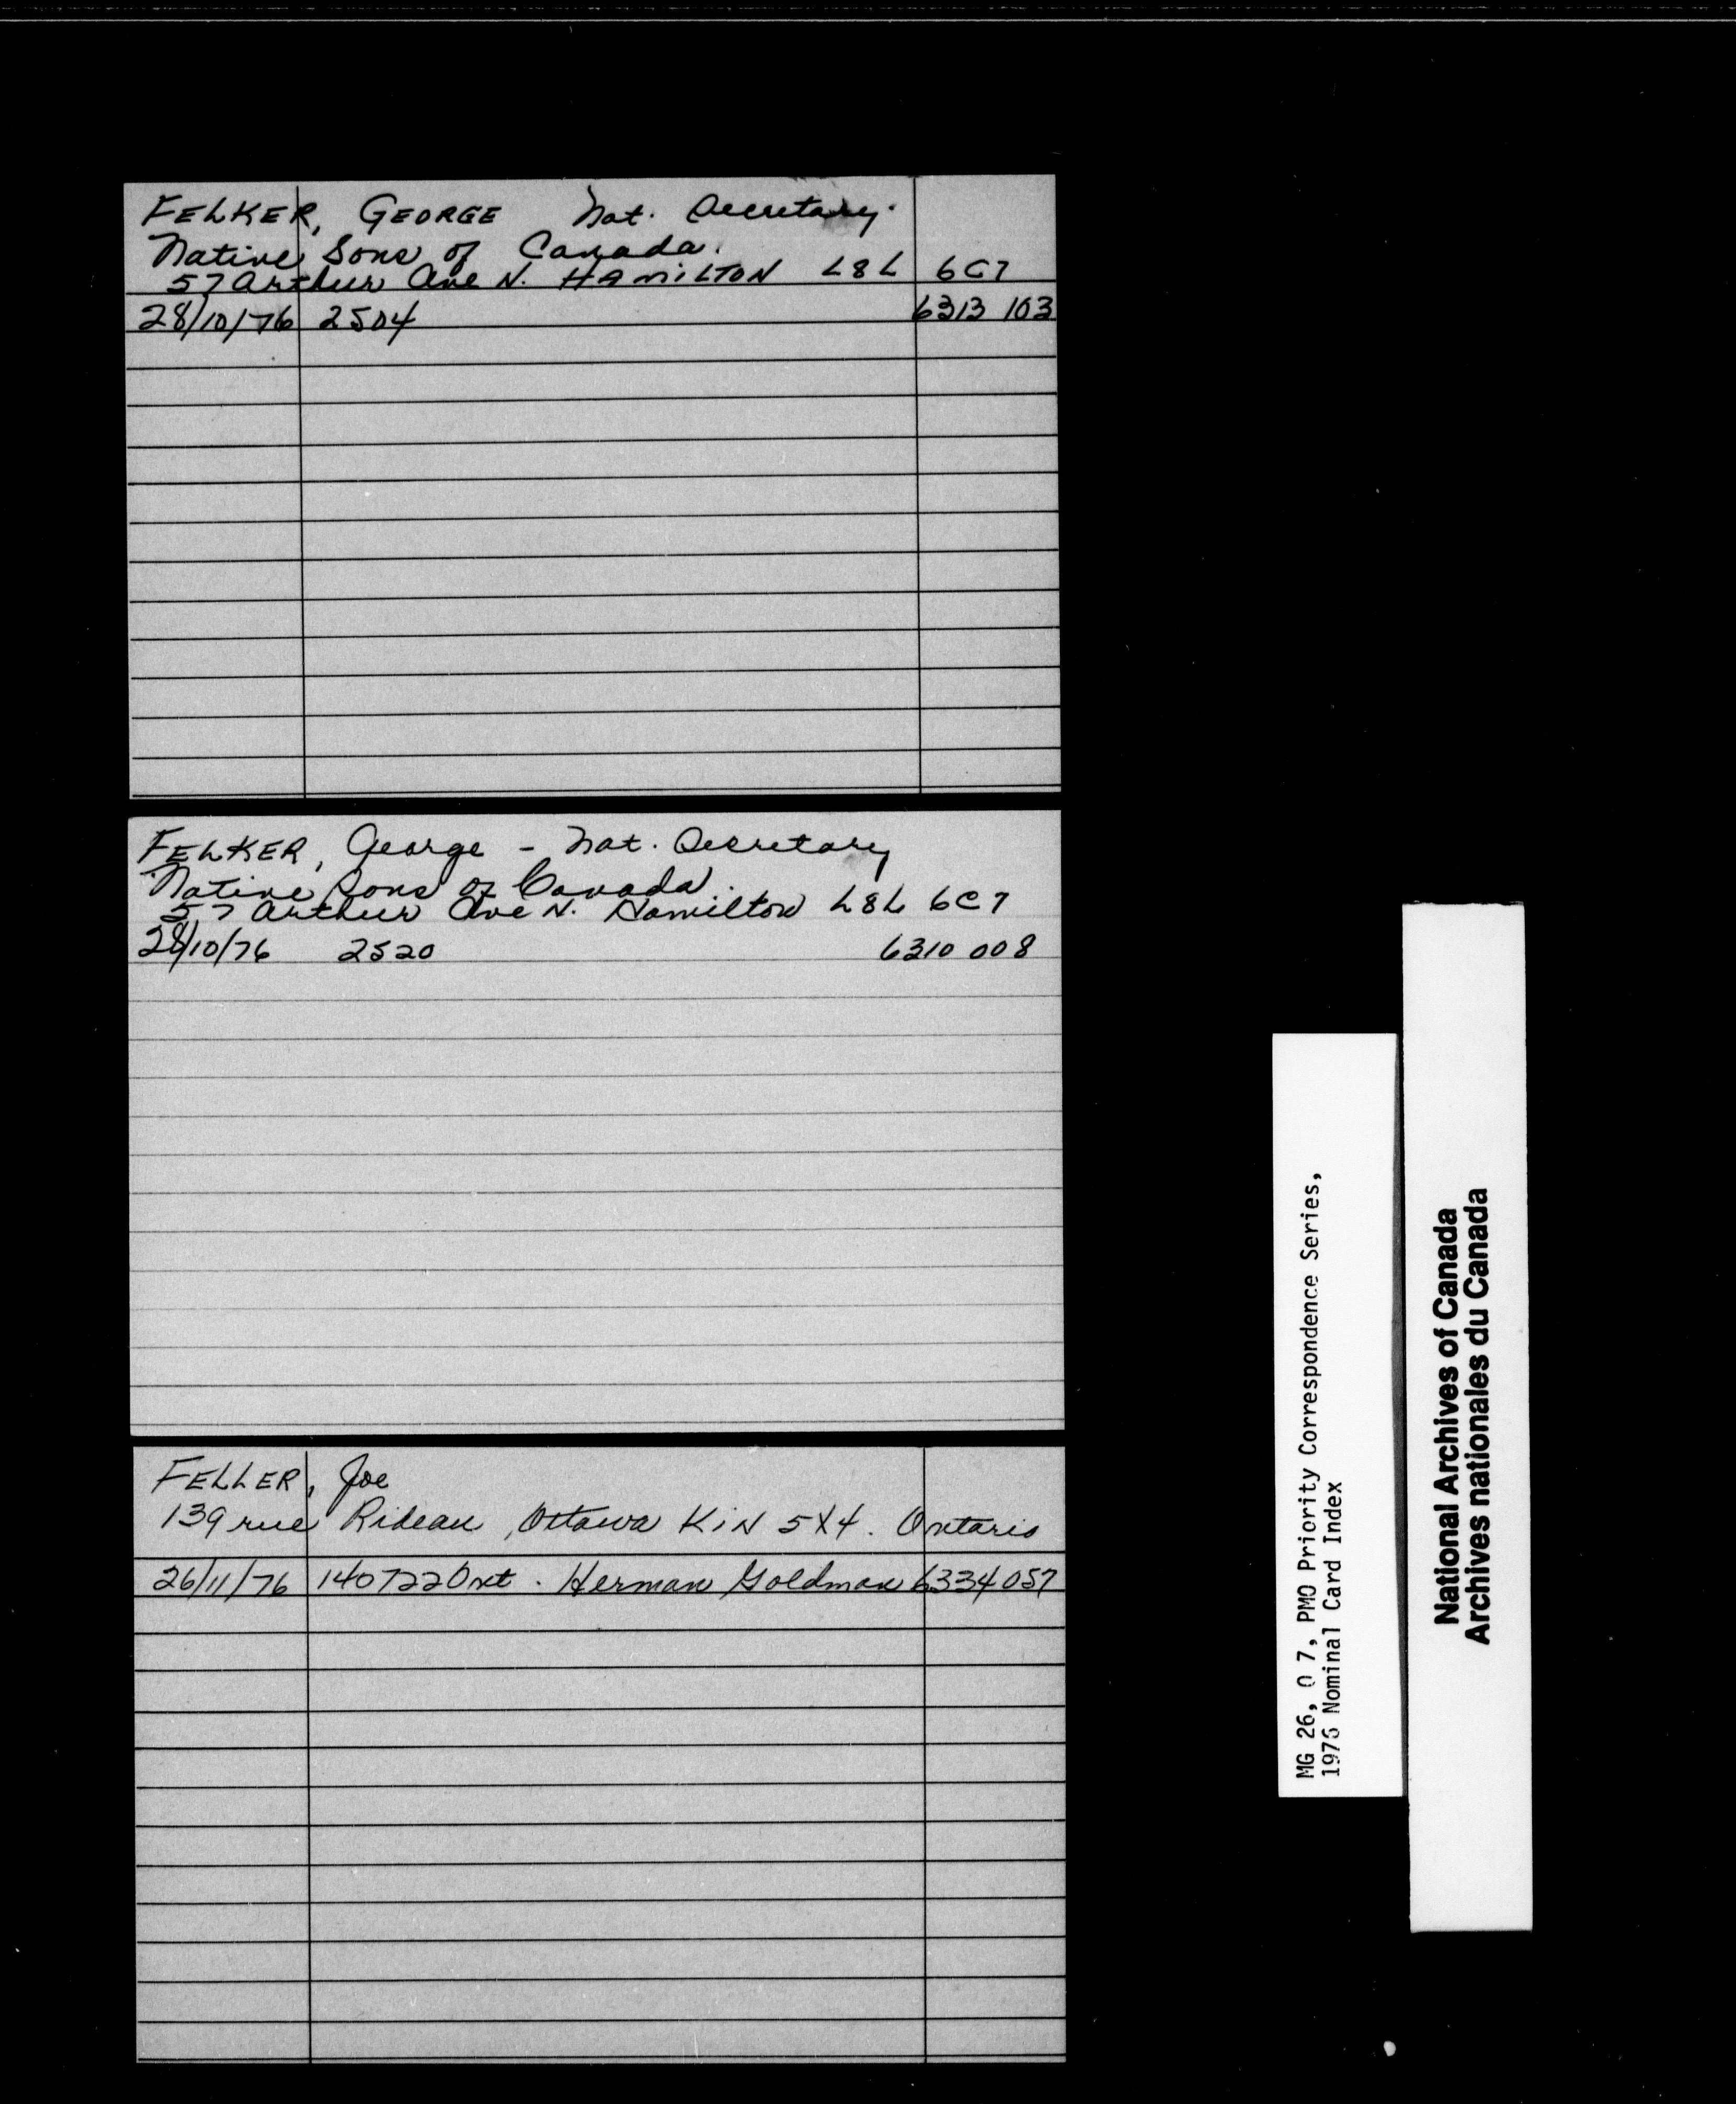 FELKER, GEORGE Nat. Secretary.
Native Sons of Canada.
57 Arthur Ave N. HAMILTON L8L 6C7
28/10/76 2504 6313 103
FELKER, George - Nat. Secretary
Native Sons of Canada.
57 Arthur Ave N. Hamilton L8L 6C7
28/10/76 2520 6310 008
FELLER, Joe
139 rue Rideau, Ottawa K1N 5X4. Ontario
26/11/76 140722 Ont. Herman Goldman 6334 057
MG 26, O 7, PMO Priority Correspondence Series,
1976 Nominal Card Index
National Archives of Canada
Archives nationales du Canada